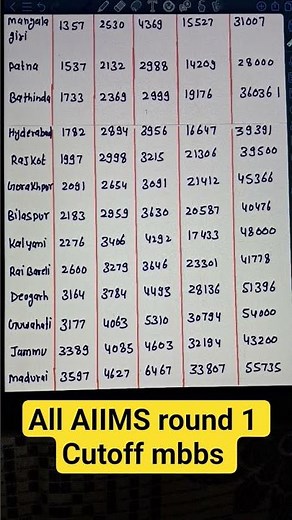 Mangala giri 1357 2530 4369 15527 31007
Patna 1537 2132 2988 14209 28000
Bathinda 1733 2369 2999 19176 360361
Hyderabad 1782 2894 3956 16647 39391
Rajkot 1997 2998 3215 21306 39500
Gorakhpur 2091 2654 3091 21412 45366
Bilaspur 2183 2959 3630 20587 40476
Kalyani 2276 3406 4292 17433 48000
Rai Bareli 2600 3279 3646 23301 41778
Deogarh 3164 3784 4493 28136 51396
Guwahati 3177 4063 5310 30794 54000
Jammu 3389 4085 4603 32194 43200
Madurai 3597 4627 6467 33807 55735
All AIIMS round 1
Cutoff mbbs